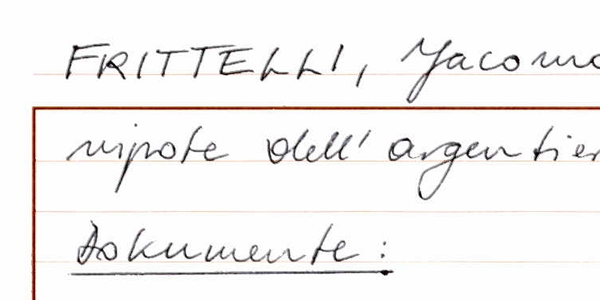 FRITTELLI, Jacomo
nipote dell' argentier
Dokumente: